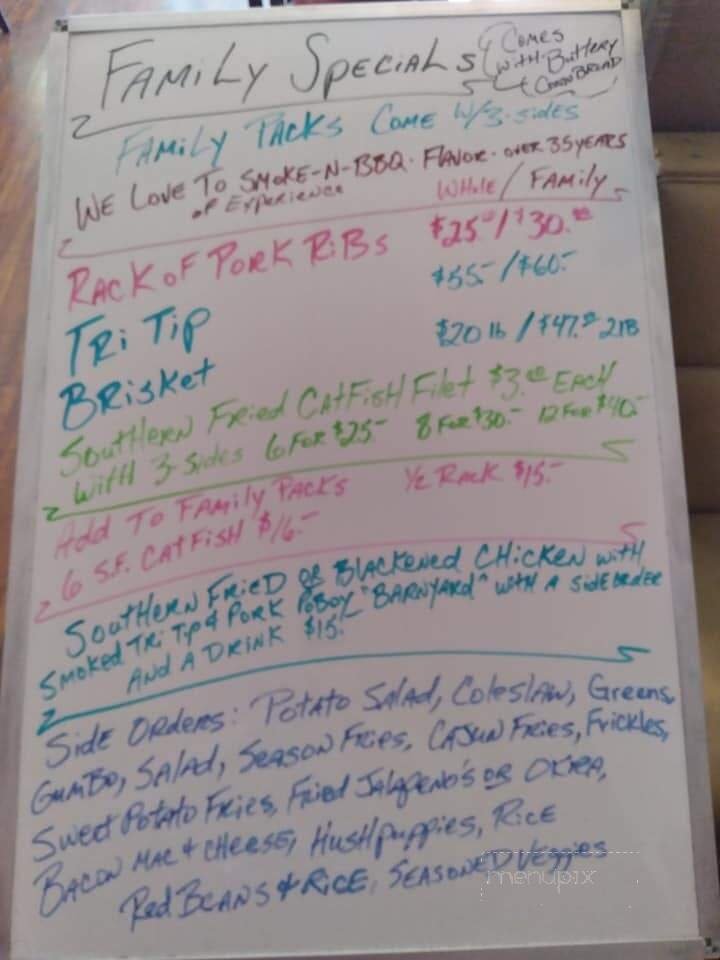 Family Specials
Comes
with-Buttery
CornBread
Family Packs Come w/3-sides
We Love To Smoke-N-BBQ. Flavor. over 35 years
of Experience
Whole / Family
Rack of Pork Ribs $25.00/$30.00
Tri Tip $55-/$60-
Brisket $20 lb / $47.00 2lb
Southern Fried Catfish Filet $3.00 Each
with 3-sides 6 for $25- 8 for $30- 12 for $40-
Add To Family Packs 1/2 Rack $15-
6 S.F. Catfish $16-
Southern Fried or Blackened Chicken with
Smoked Tri Tip & Pork PoBoy "Barnyard" with a side order
and a drink $15-
Side Orders: Potato Salad, Coleslaw, Greens,
Gumbo, Salad, Season Fries, Cajun Fries, Frickles,
Sweet Potato Fries, Fried Jalapeno's or Okra,
Bacon Mac & Cheese, Hushpuppies, Rice
Red Beans & Rice, Seasoned Veggies
menupix